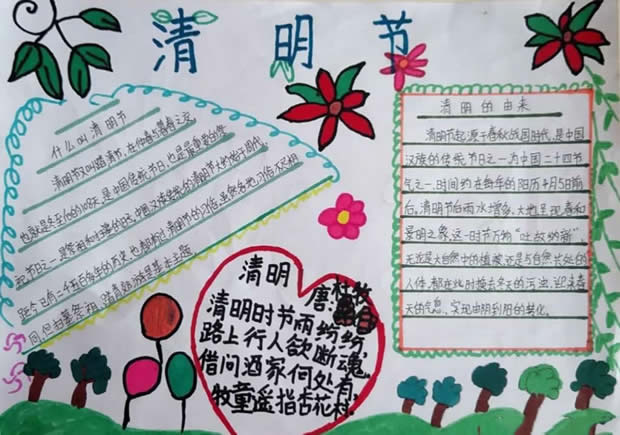 清明节
什么叫清明节
清明节又叫踏清节,在仲春与暮春之交,
也就是冬至后的108天,是中国传统节日,也是最重要的祭
祀节日之一,是祭祖和扫墓的日
距今已有二千五百多年的历史
同,但扫墓祭祖、踏青郊游是基本主题
清明
唐 杜牧
清明时节雨纷纷,
路上行人欲断魂。
借问酒家何处有,
牧童遥指杏花村。
清明的由来
清明节起源于春秋战国时代,是中国
汉族的传统节日之一,为中国二十四节
气之一,时间约在每年的阳历4月5日前
后,清明节后雨水增多,大地呈现春和
景明之象,这一时节万物“吐故纳新”,
无论是大自然中的植被,还是与自然共处的
人体,都在此时换去冬天的污浊,迎来春
天的气息,实现由阴到阳的转化。